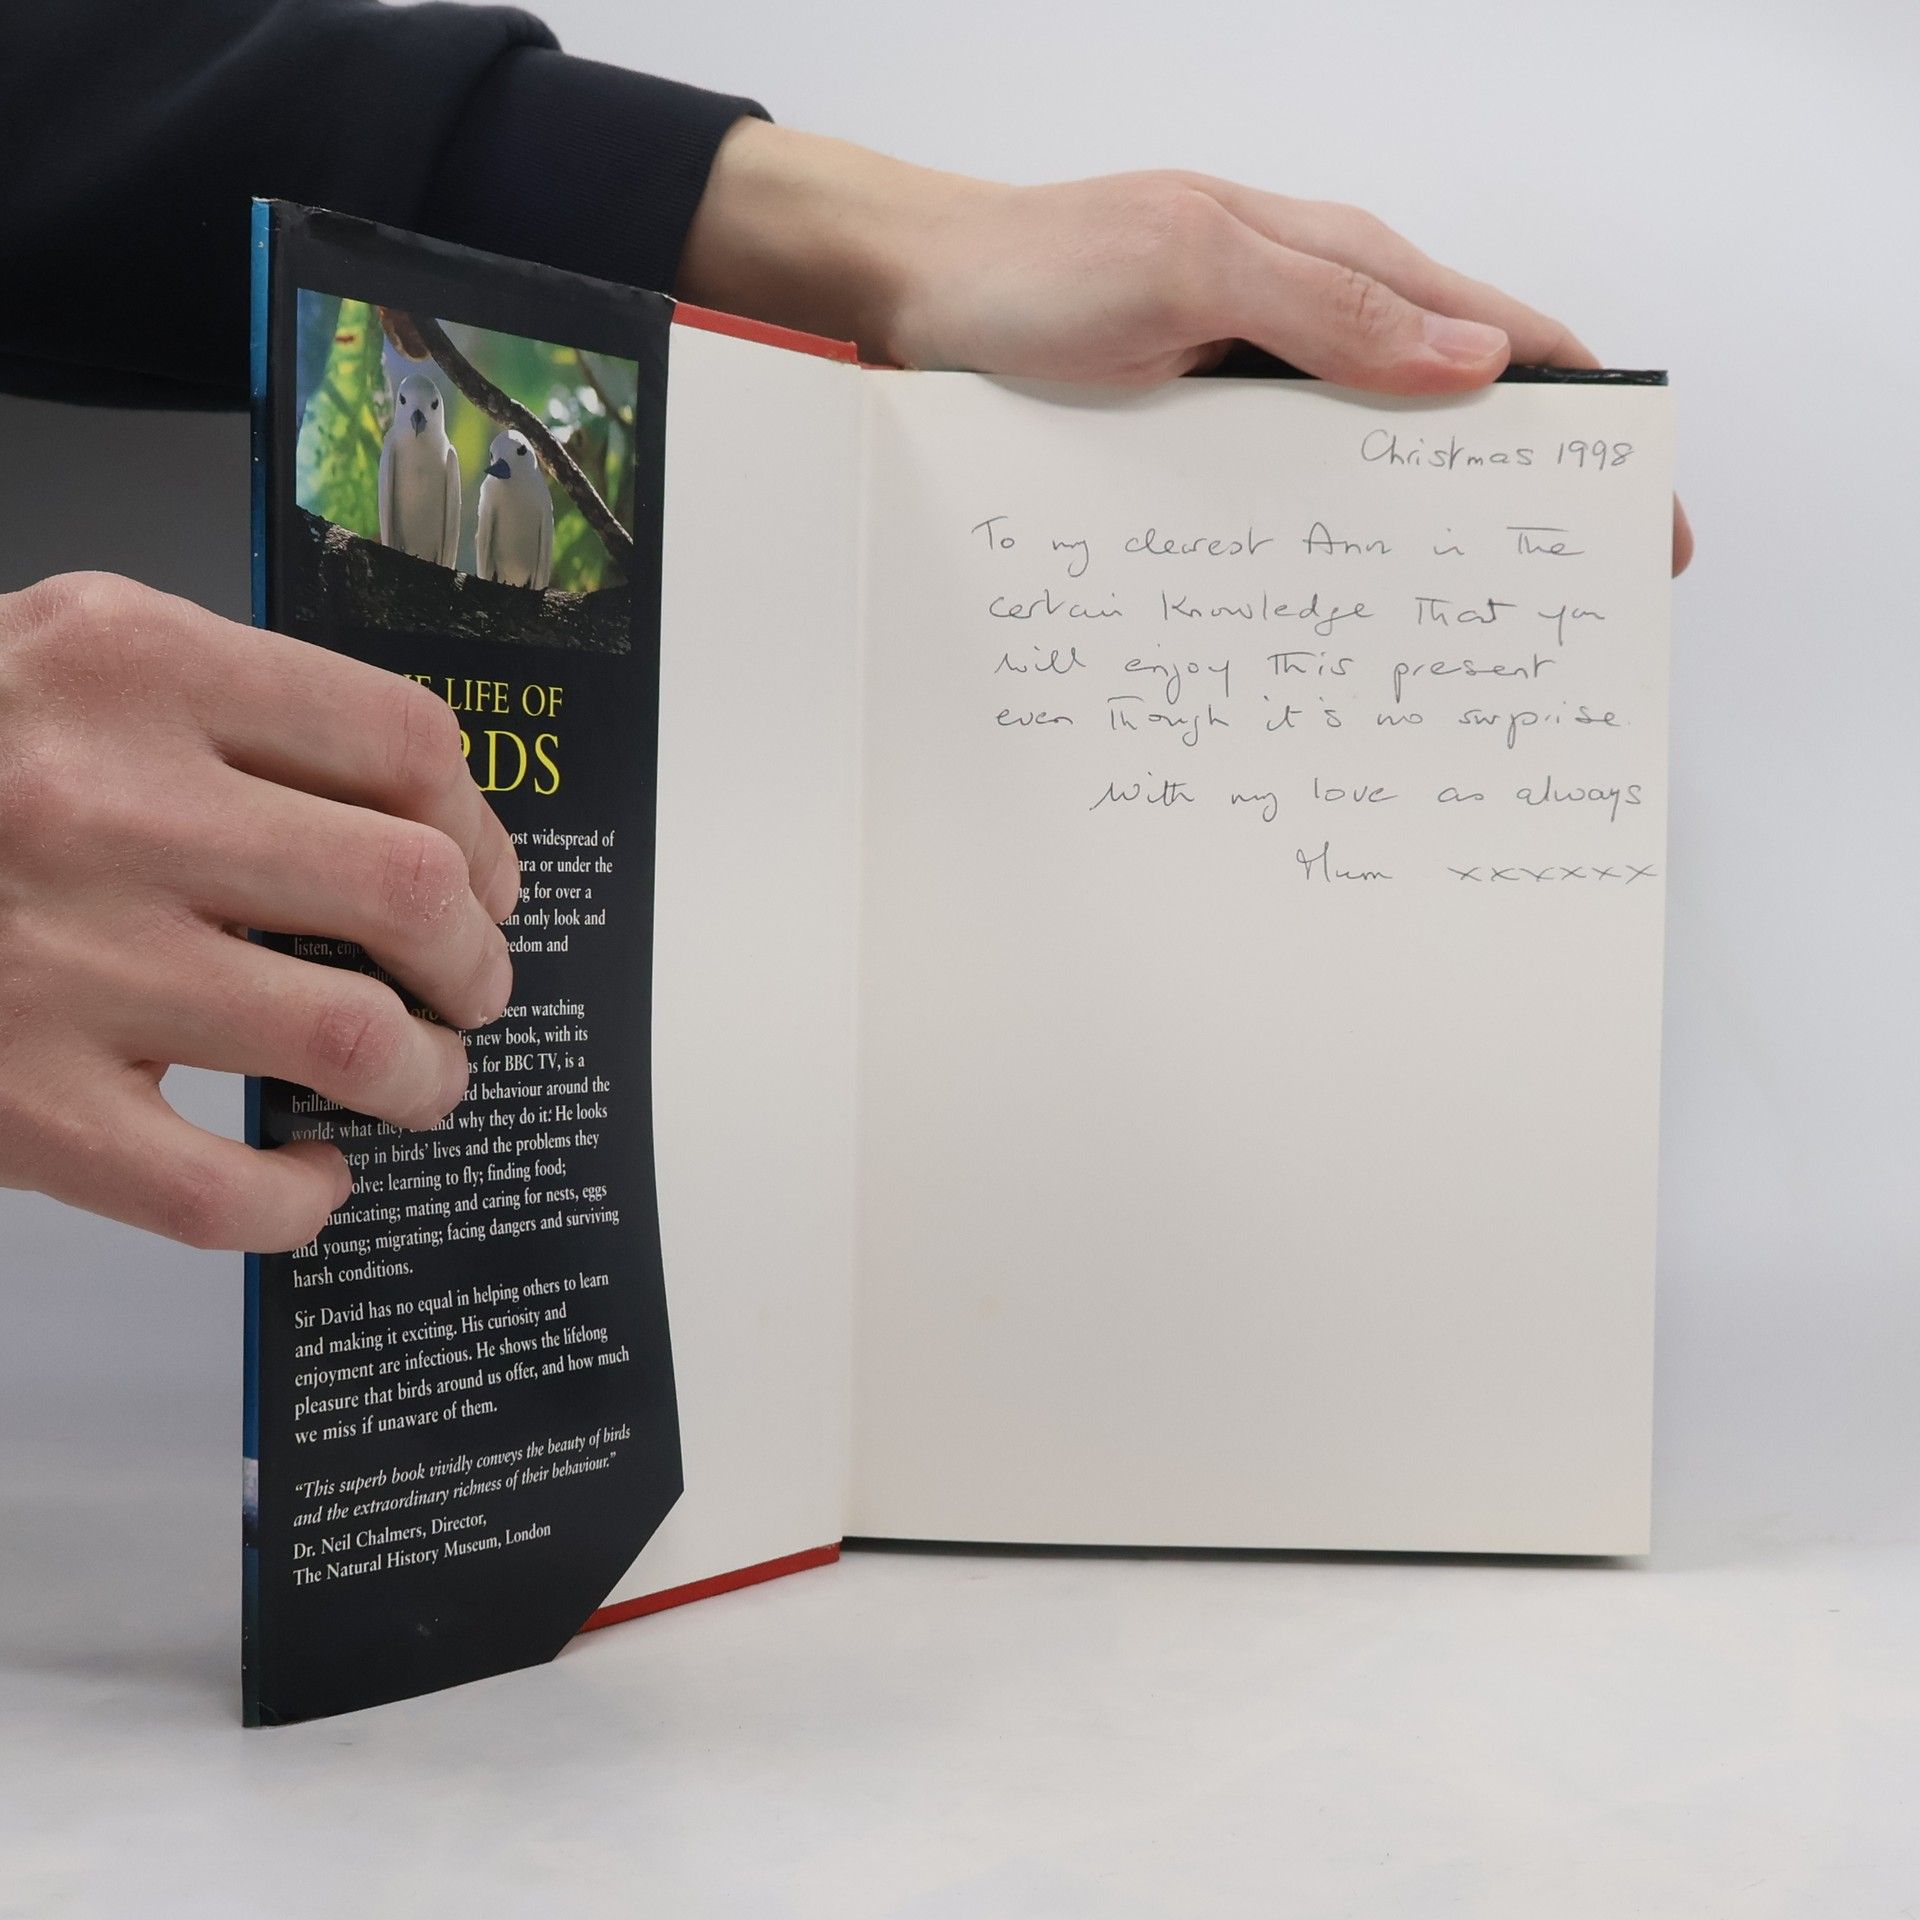 LIFE OF
RDS
ost widespread of
ara or under the
ng for over a
an only look and
listen, enj edom and
been watching
is new book, with its
ns for BBC TV, is a
brillian rd behaviour around the
world: what they and why they do it. He looks
step in birds' lives and the problems they
olve: learning to fly; finding food;
municating; mating and caring for nests, eggs
and young; migrating; facing dangers and surviving
harsh conditions.
Sir David has no equal in helping others to learn
and making it exciting. His curiosity and
enjoyment are infectious. He shows the lifelong
pleasure that birds around us offer, and how much
we miss if unaware of them.
“This superb book vividly conveys the beauty of birds
and the extraordinary richness of their behaviour.”
Dr. Neil Chalmers, Director,
The Natural History Museum, London
Christmas 1998
To my dearest Ann in The
certain Knowledge That you
will enjoy This present
even Though it's no surprise.
With my love as always
Mum xxxxxx